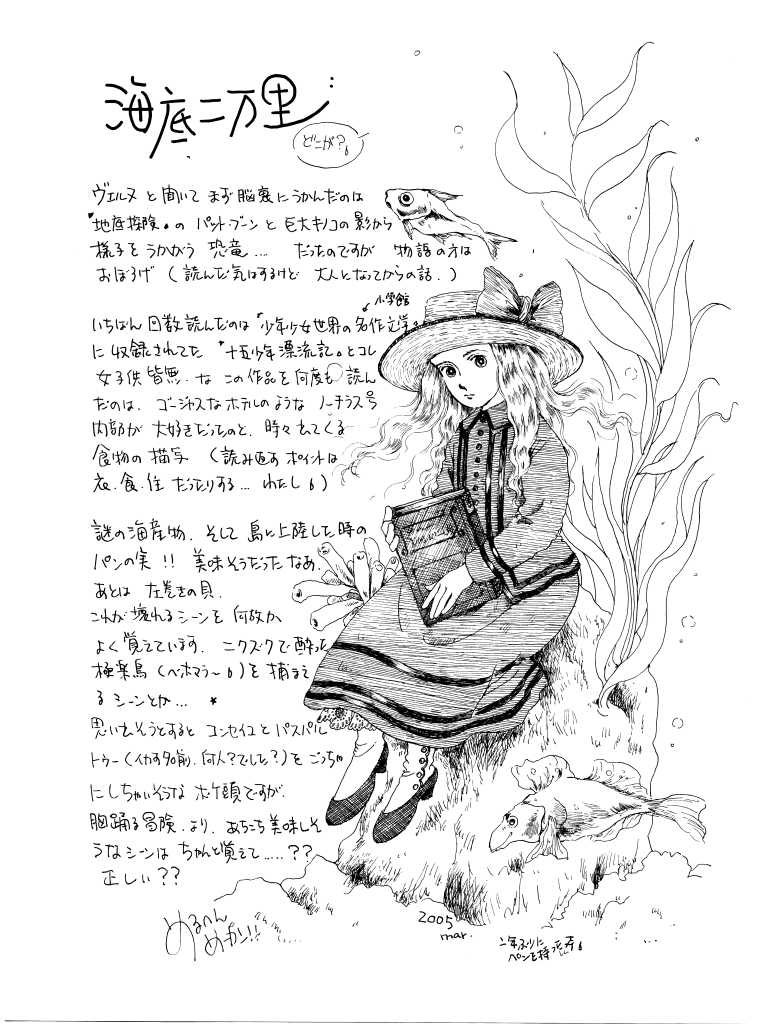 海底二万里
どこが？
ヴェルヌ と 聞いて まず 脳裏にうかんだのは
『地底探険』の パット・ブーンと 巨大キノコの影から
様子をうかがう 恐竜… だったのですが 物語の方は
おぼろげ（読んだ気はするけど 大人となってからの話．）
小学館
いちばん 回数 読んだのは『少年少女世界の名作文学』
に 収録されてた 『十五少年漂流記』とコレ
女子供皆無．な この作品を 何度も 読ん
だのは．ゴージャスなホテルのような ノーチラス号
内部が 大好きだったのと．時々 出てくる
食物の 描写 （読み返す ポイントは
衣．食．住 だったりする… わたし）
謎の海産物．そして 島に上陸した時の
パンの実 !! 美味そうだったなあ．
あとは 左巻きの貝．
これが 壊れるシーンを 何故か
よく 覚えています．ニクズクで 酔った
極楽鳥（ベホマラー）を 捕まえ
るシーンとか…
思い出そうとすると コンセイユと パスパル
トゥー（イカす名前．何人？でした？）を ごっちゃ
にしちゃいそうな ボケ頭ですが．
胸踊る冒険．より．あちこち 美味しそ
うなシーンは ちゃんと覚えて……??
正しい??
めるへん
めーかー!!
2005
mar.
二年ぶりに
ペンを持った